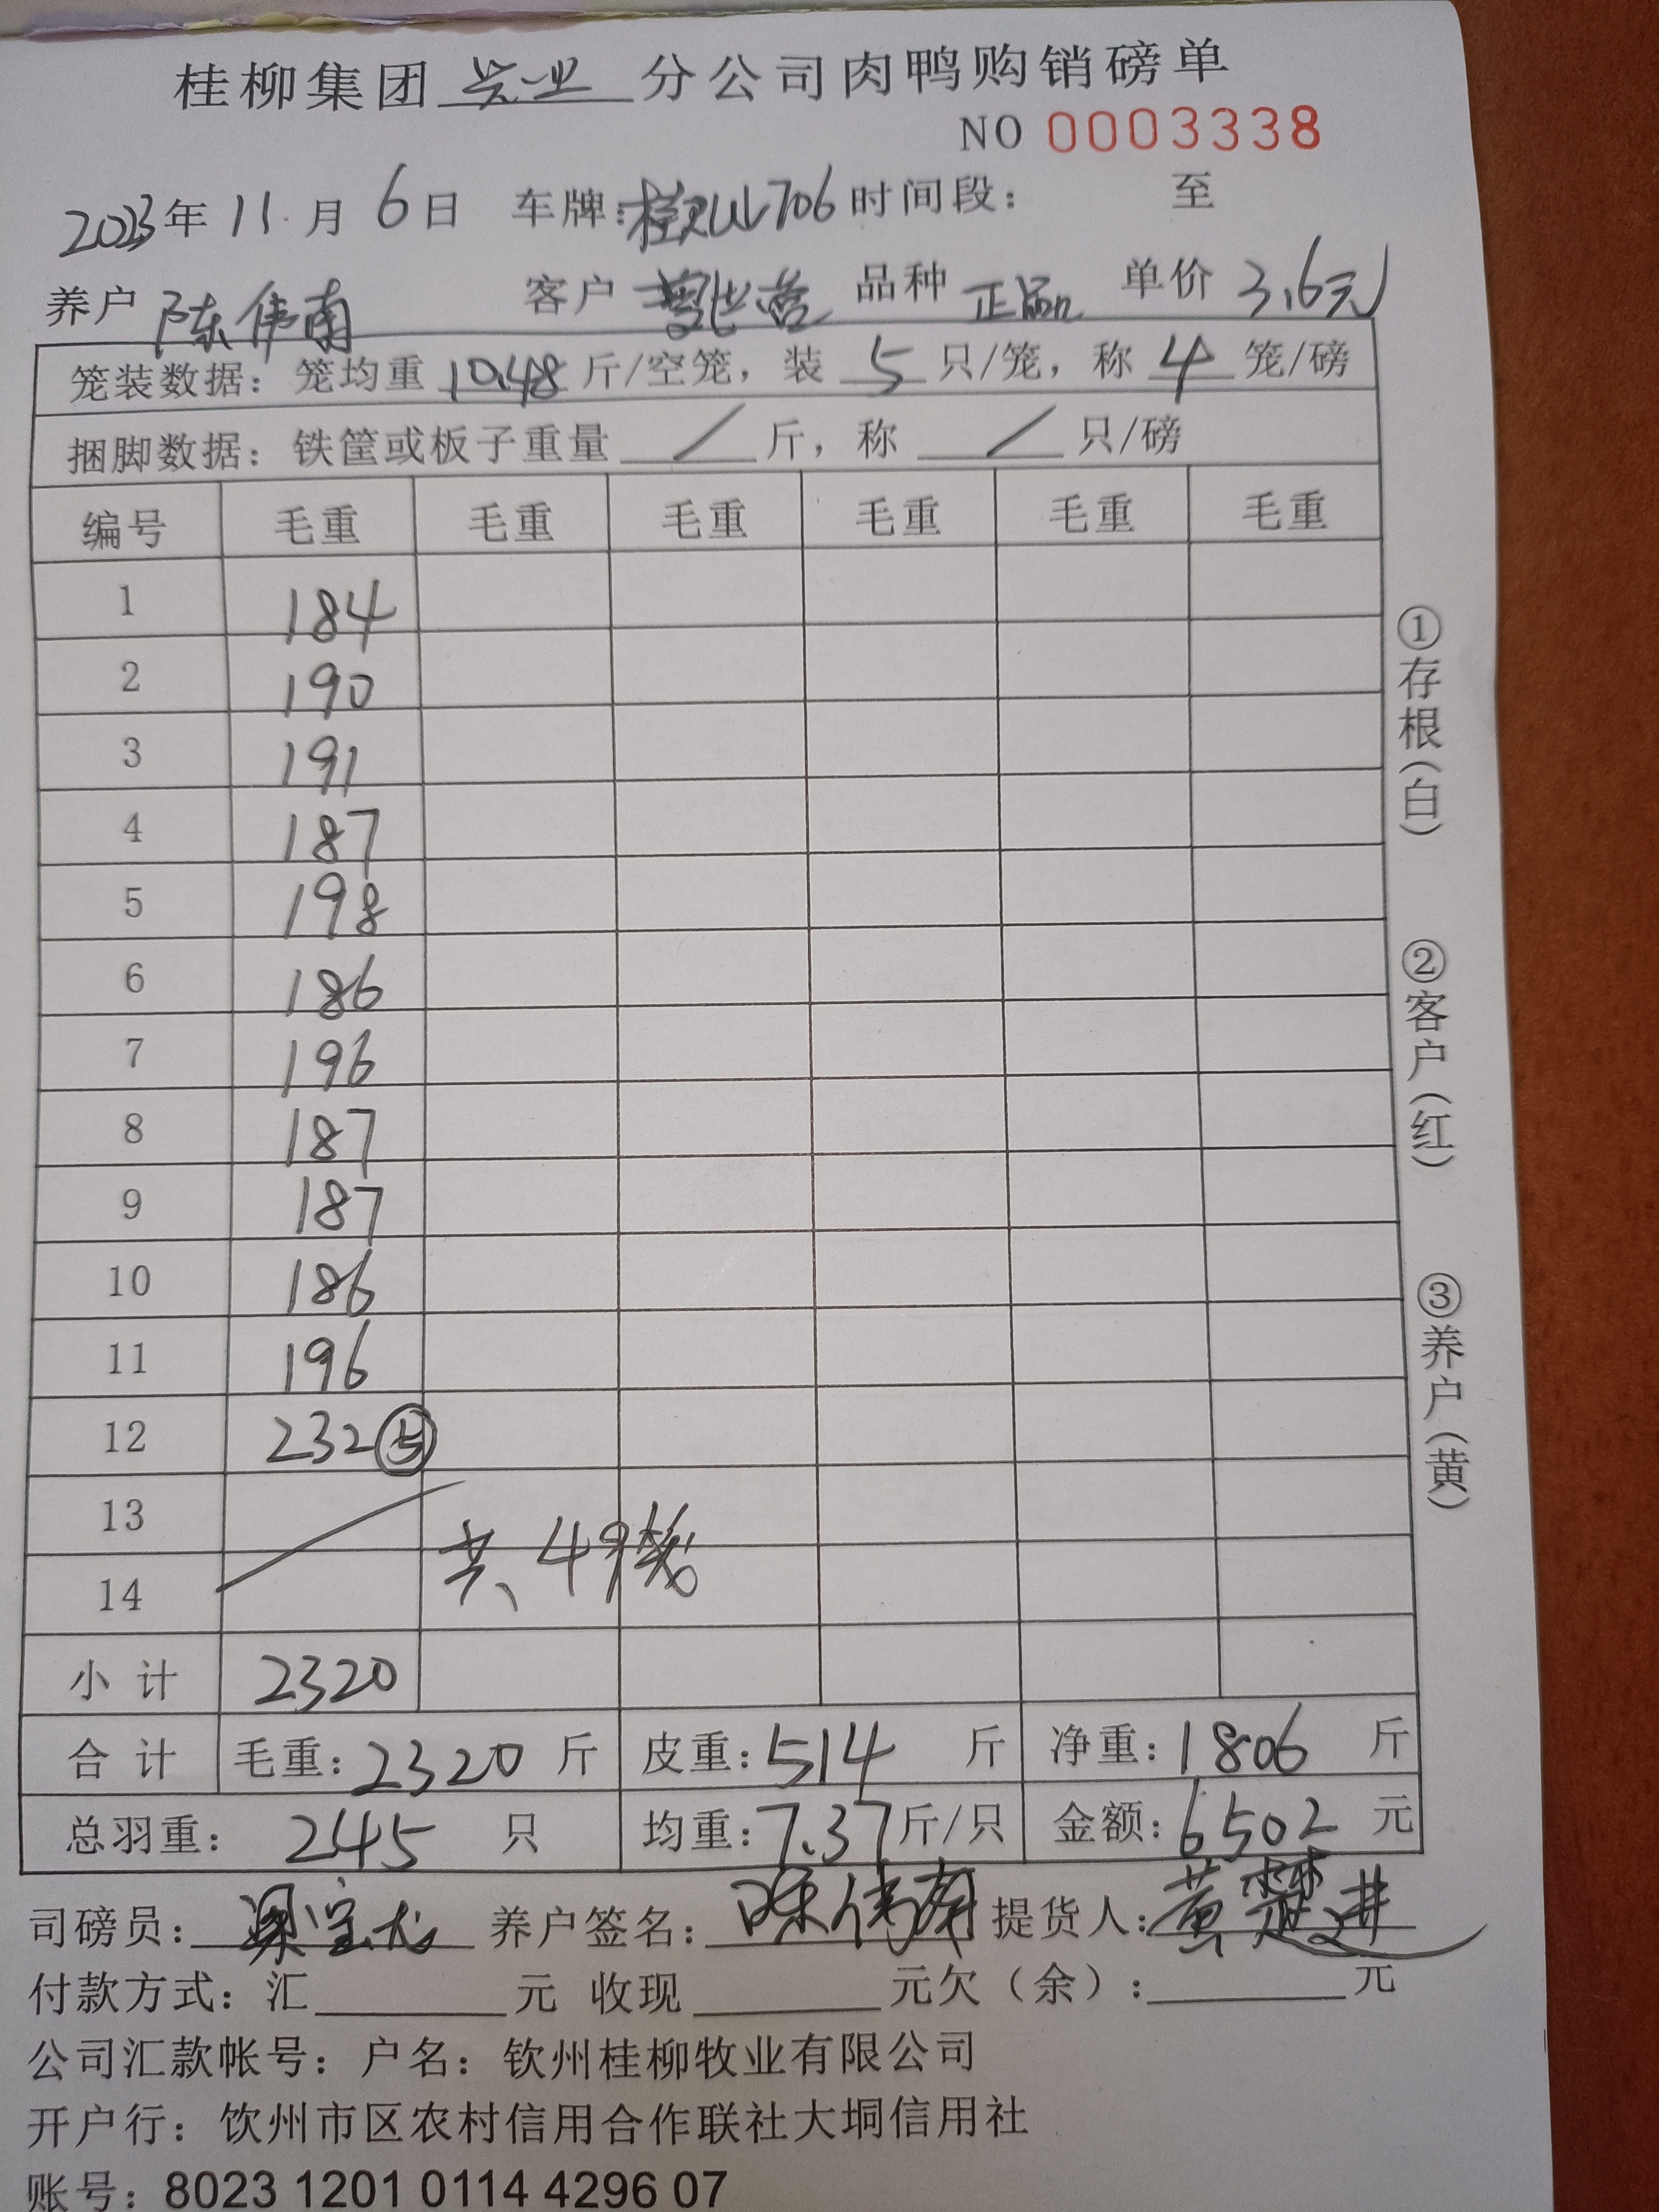 桂柳集团 兴业 分公司肉鸭购销磅单
NO 0003338
2023年 11 月 6 日 车牌: 706 时间段: 至
养户 陈伟南 客户 品种 正品 单价 3.6元
笼装数据: 笼均重 10.48 斤/空笼, 装 5 只/笼, 称 4 笼/磅
捆脚数据: 铁筐或板子重量 / 斤, 称 / 只/磅
编号 毛重 毛重 毛重 毛重 毛重 毛重
1 184
2 190
3 191
4 187
5 198
6 186
7 196
8 187
9 187
10 186
11 196
12 232 ⑤
13
共49笼
14
小计 2320
合计 毛重: 2320 斤 皮重: 514 斤 净重: 1806 斤
总羽重: 245 只 均重: 7.37 斤/只 金额: 6502 元
司磅员: 梁宝龙 养户签名: 陈伟南 提货人: 黄楚进
付款方式: 汇 元 收现 元欠(余): 元
公司汇款帐号: 户名: 钦州桂柳牧业有限公司
开户行: 钦州市区农村信用合作联社大垌信用社
账号: 8023 1201 0114 4296 07
①存根(白)
②客户(红)
③养户(黄)